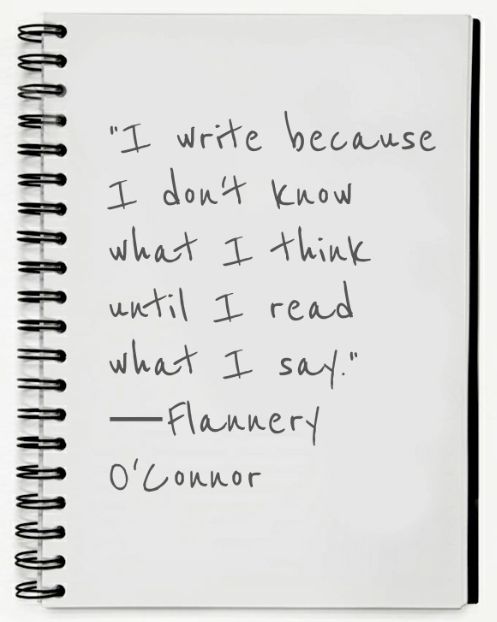 "I write because
I don't know
what I think
until I read
what I say."
—Flannery
O'Connor